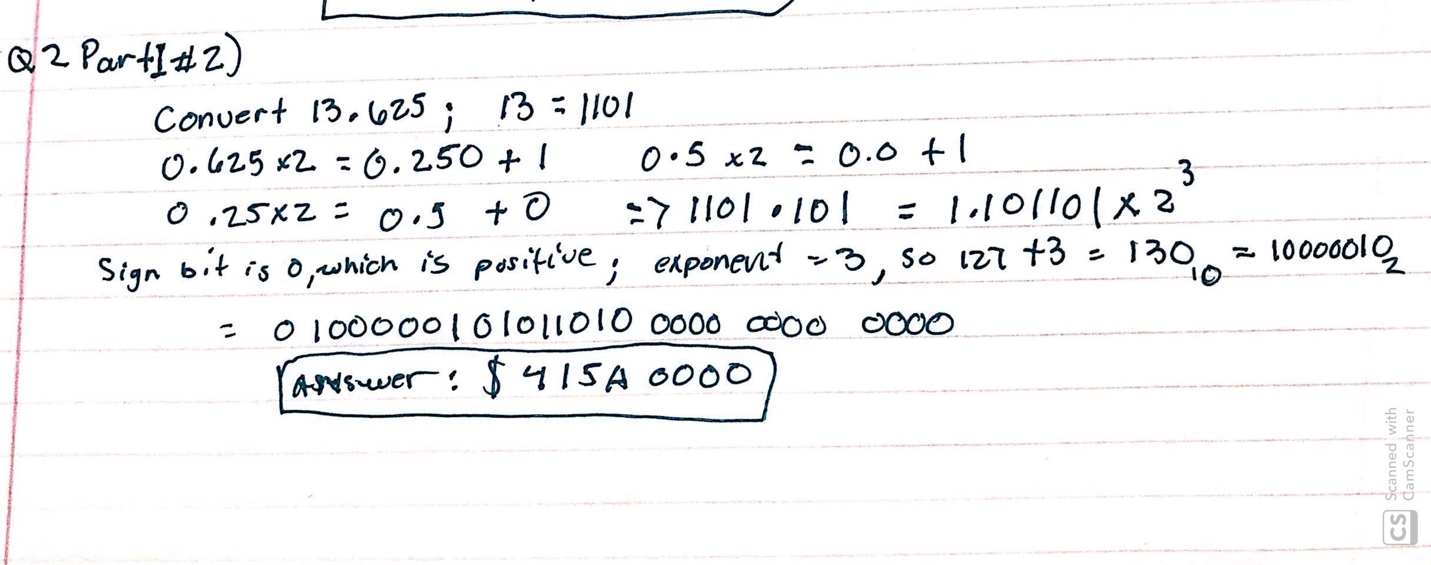 Q2 Part I #2)
Convert 13.625 ; 13 = 1101
0.625 x2 = 0.250 + 1 0.5 x2 = 0.0 + 1
0.25x2 = 0.5 + 0 => 1101.101 = 1.101101 x 2³
Sign bit is 0, which is positive; exponent = 3, so 127 + 3 = 130₁₀ = 10000010₂
= 0 100000101011010 0000 0000 0000
Answer: $ 415A 0000
CS Scanned with
CamScanner